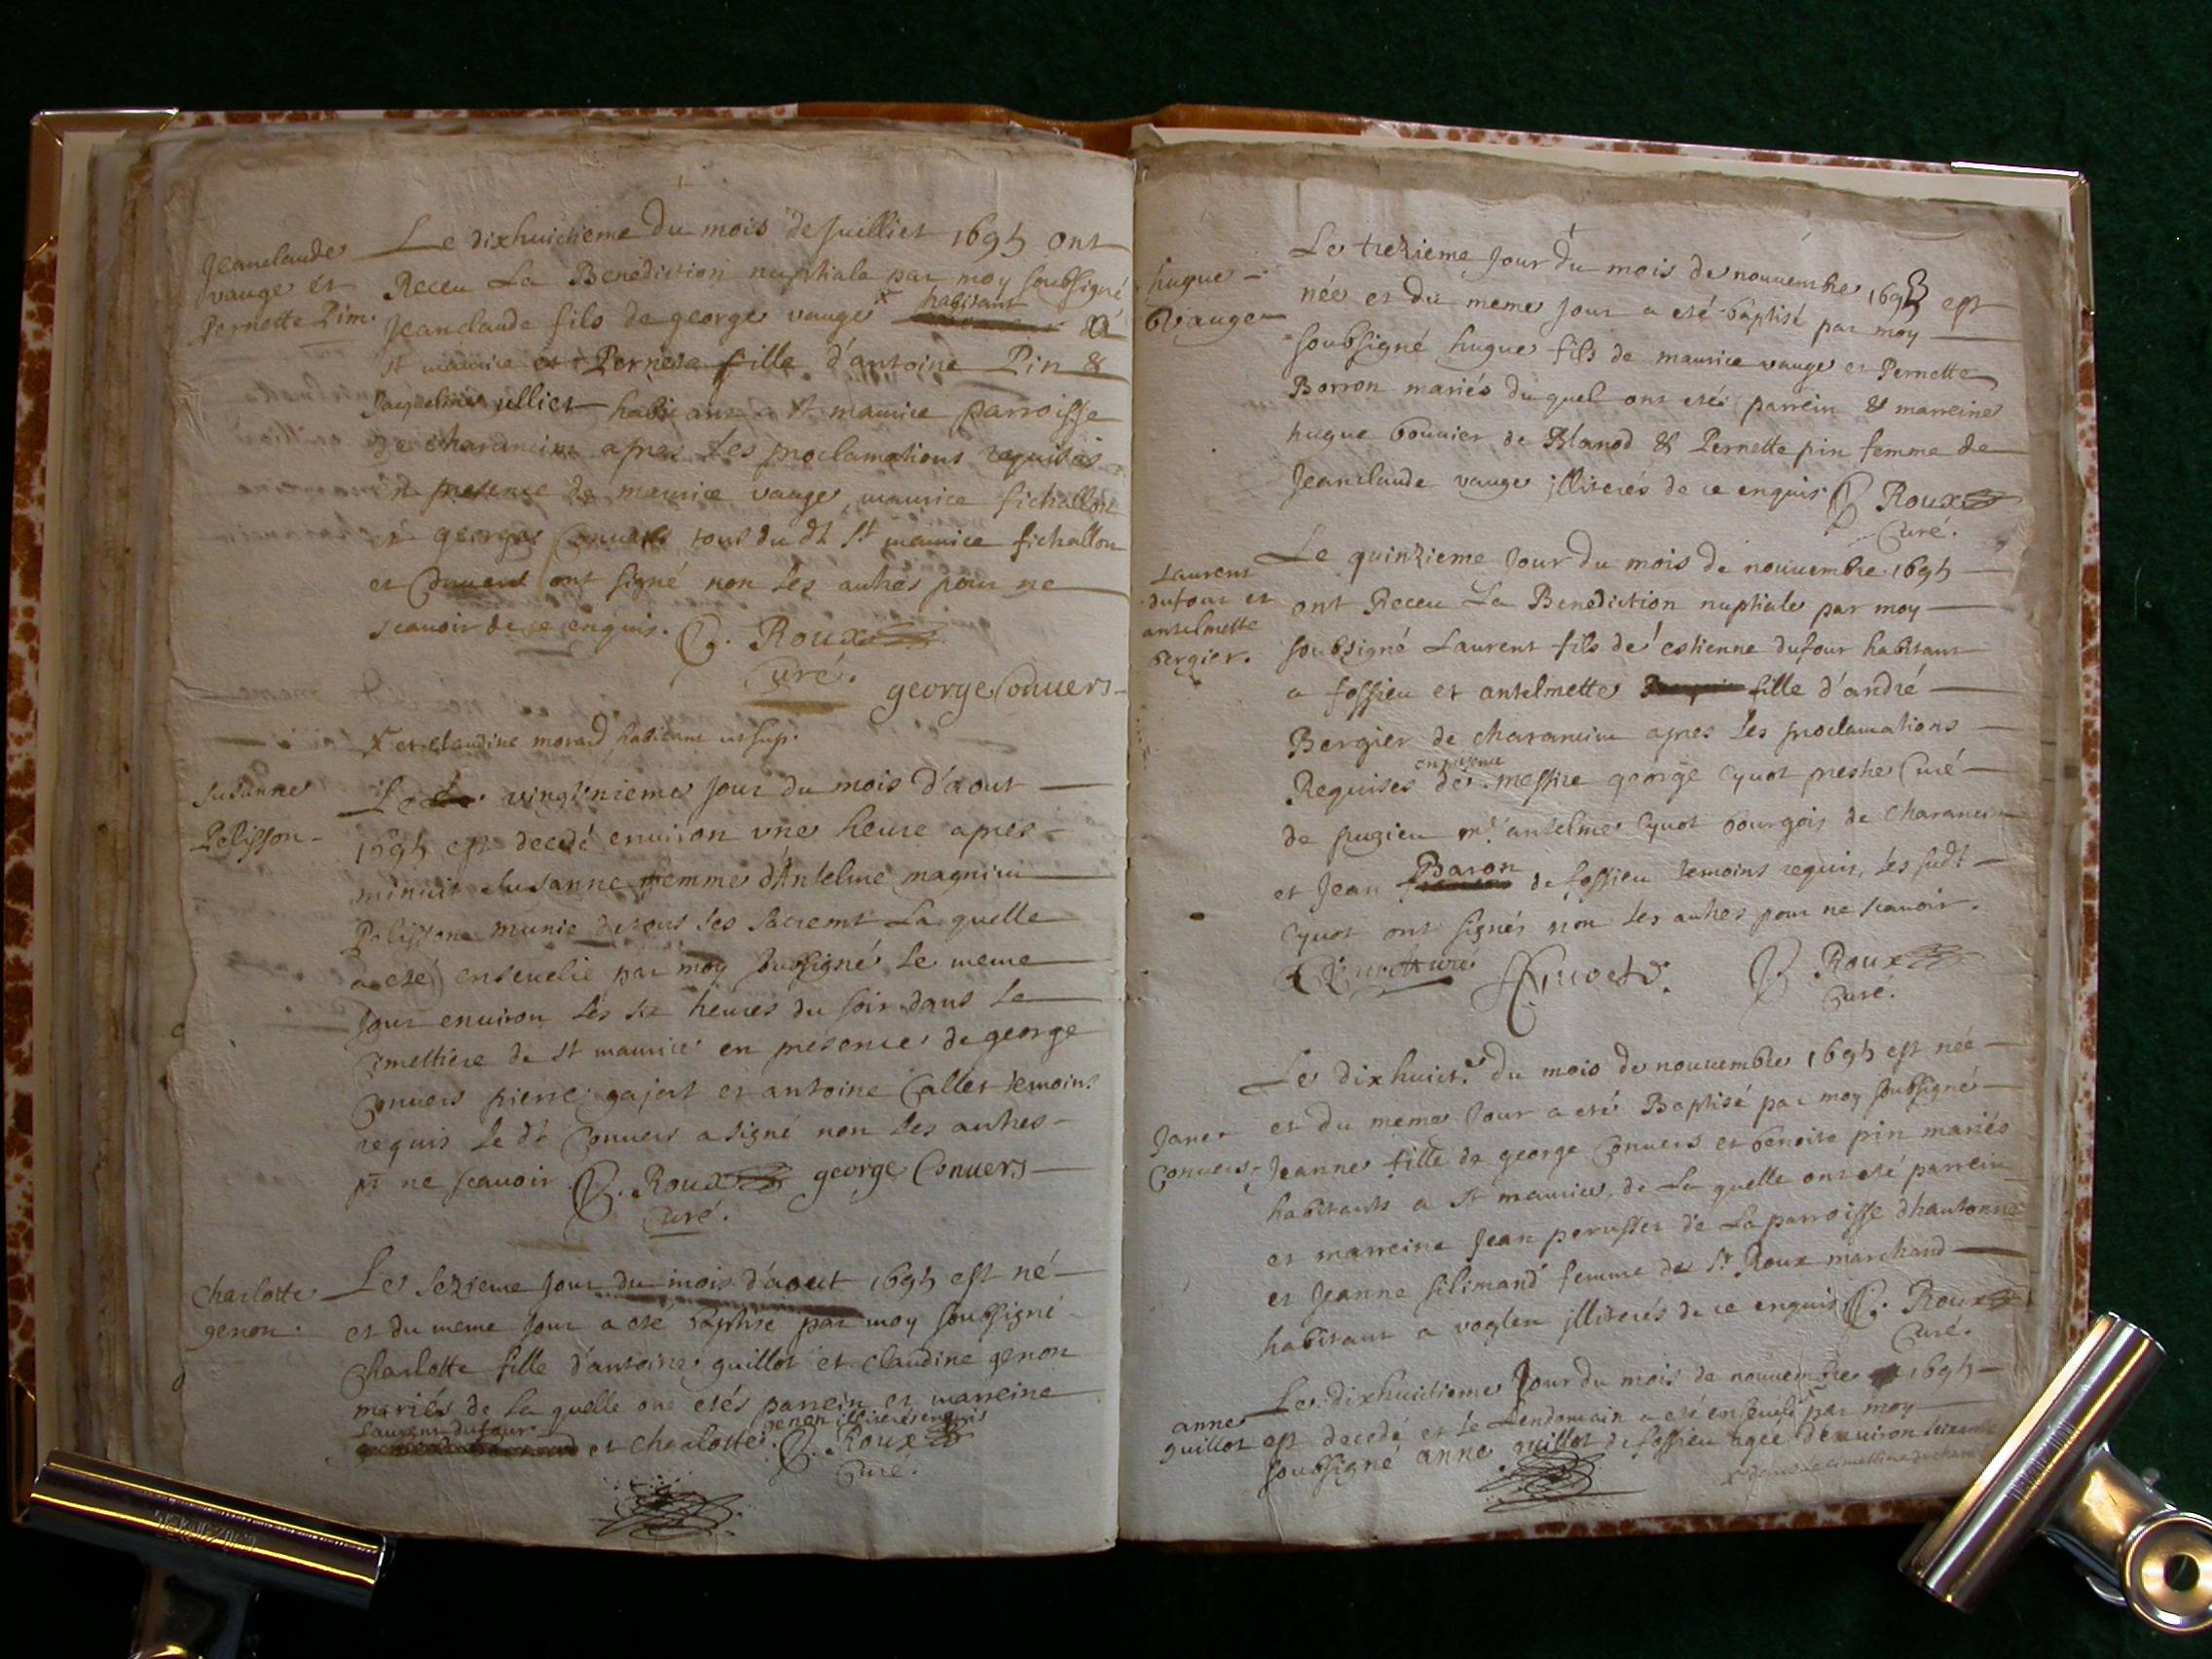 Jeanclaude
vauge et
Pernette Pin.
Le dixhuictieme du mois de Juilliet 1695 ont
Receu La Benediction nuptiale par moy soubsigné
Jeanclaude fils de george vauge x habitant a
st maurice et Perneta fille d'antoine Pin &
Jaqueline ulliet habitant a st maurice parroisse
de charancin apres Les proclamations requises
en presence de maurice vauge, maurice fichallon
et george Conuers tous du dt st maurice fichallon
et Conuers ont signé non les autres pour ne
scauoir de ce enquis. Roux
Curé.
george Conuers
x et claudine morard habitant ut sup.
Susanne
Pelisson
Le vingtunieme Jour du mois d'aout
1695 est decedé enuiron vne heure apres
minuit Susanne femme d'Antelme magnin
Pelisson munie de tous les sacremt La quelle
a eté enseuelie par moy soubsigné Le meme
Jour enuiron Les six heures du soir dans Le
Cimettiere de st maurice en presence de george
Conuers pierre gajat et antoine Callet temoins
requis Le dt Conuers a signé non Les autres
pr ne scauoir. Roux george Conuers
Curé.
Charlotte
genon.
Le sezieme Jour du mois d'aout 1695 est né
et du meme Jour a eté baptisé par moy soubsigné
Charlotte fille d'antoine guillot et Claudine genon
mariés de La quelle ont etés parrein et marreine
Laurent dufour et charlotte genon illiterés enquis Roux
Curé.
hugue
Vauge
Le trezieme Jour du mois de nouuembre 1695 est
née et du meme Jour a eté baptisé par moy
soubsigné hugue fils de maurice vauge et Pernette
Borron mariés du quel ont etés parrein & marreine
hugue bouuier de Blanod & Pernette pin femme de
Jeanclaude vauge illiterés de ce enquis Roux
Curé.
Laurent
dufour et
antelmette
bergier.
Le quinzieme Jour du mois de nouuembre 1695
ont Receu La Benediction nuptiale par moy
soubsigné Laurent fils de estienne dufour habitant
a fossieu et antelmette fille d'andré
Bergier de charancin apres Les proclamations
Requises en presence de messire george Cyuot prestre Curé
de sugieu mr antelme Cyuot bourgois de Charancin
et Jean Baron de fossieu temoins requis, les sudt
Cyuot ont signés non Les autres pour ne scauoir.
Roux
Curé.
Jane
Conuers
Le dixhuict.e du mois de nouuembre 1695 est née
et du meme Jour a eté Baptisé par moy soubsigné
Jeanne fille de george Conuers et benoite pin mariés
habitants a st maurice, de La quelle ont eté parrein
et marreine Jean perusset de La parroisse d'hautonne
et Jeanne silimand femme de sr Roux marchand
habitant a voglen illiterés de ce enquis Roux
Curé.
anne
guillot
Le dixhuictieme Jour du mois de nouuembre 1695
est decedé et le Lendemain a eté enseueli x par moy
soubsigné anne guillot de fossieu agee d'enuiron seixante
x dans le cimettiere de charan